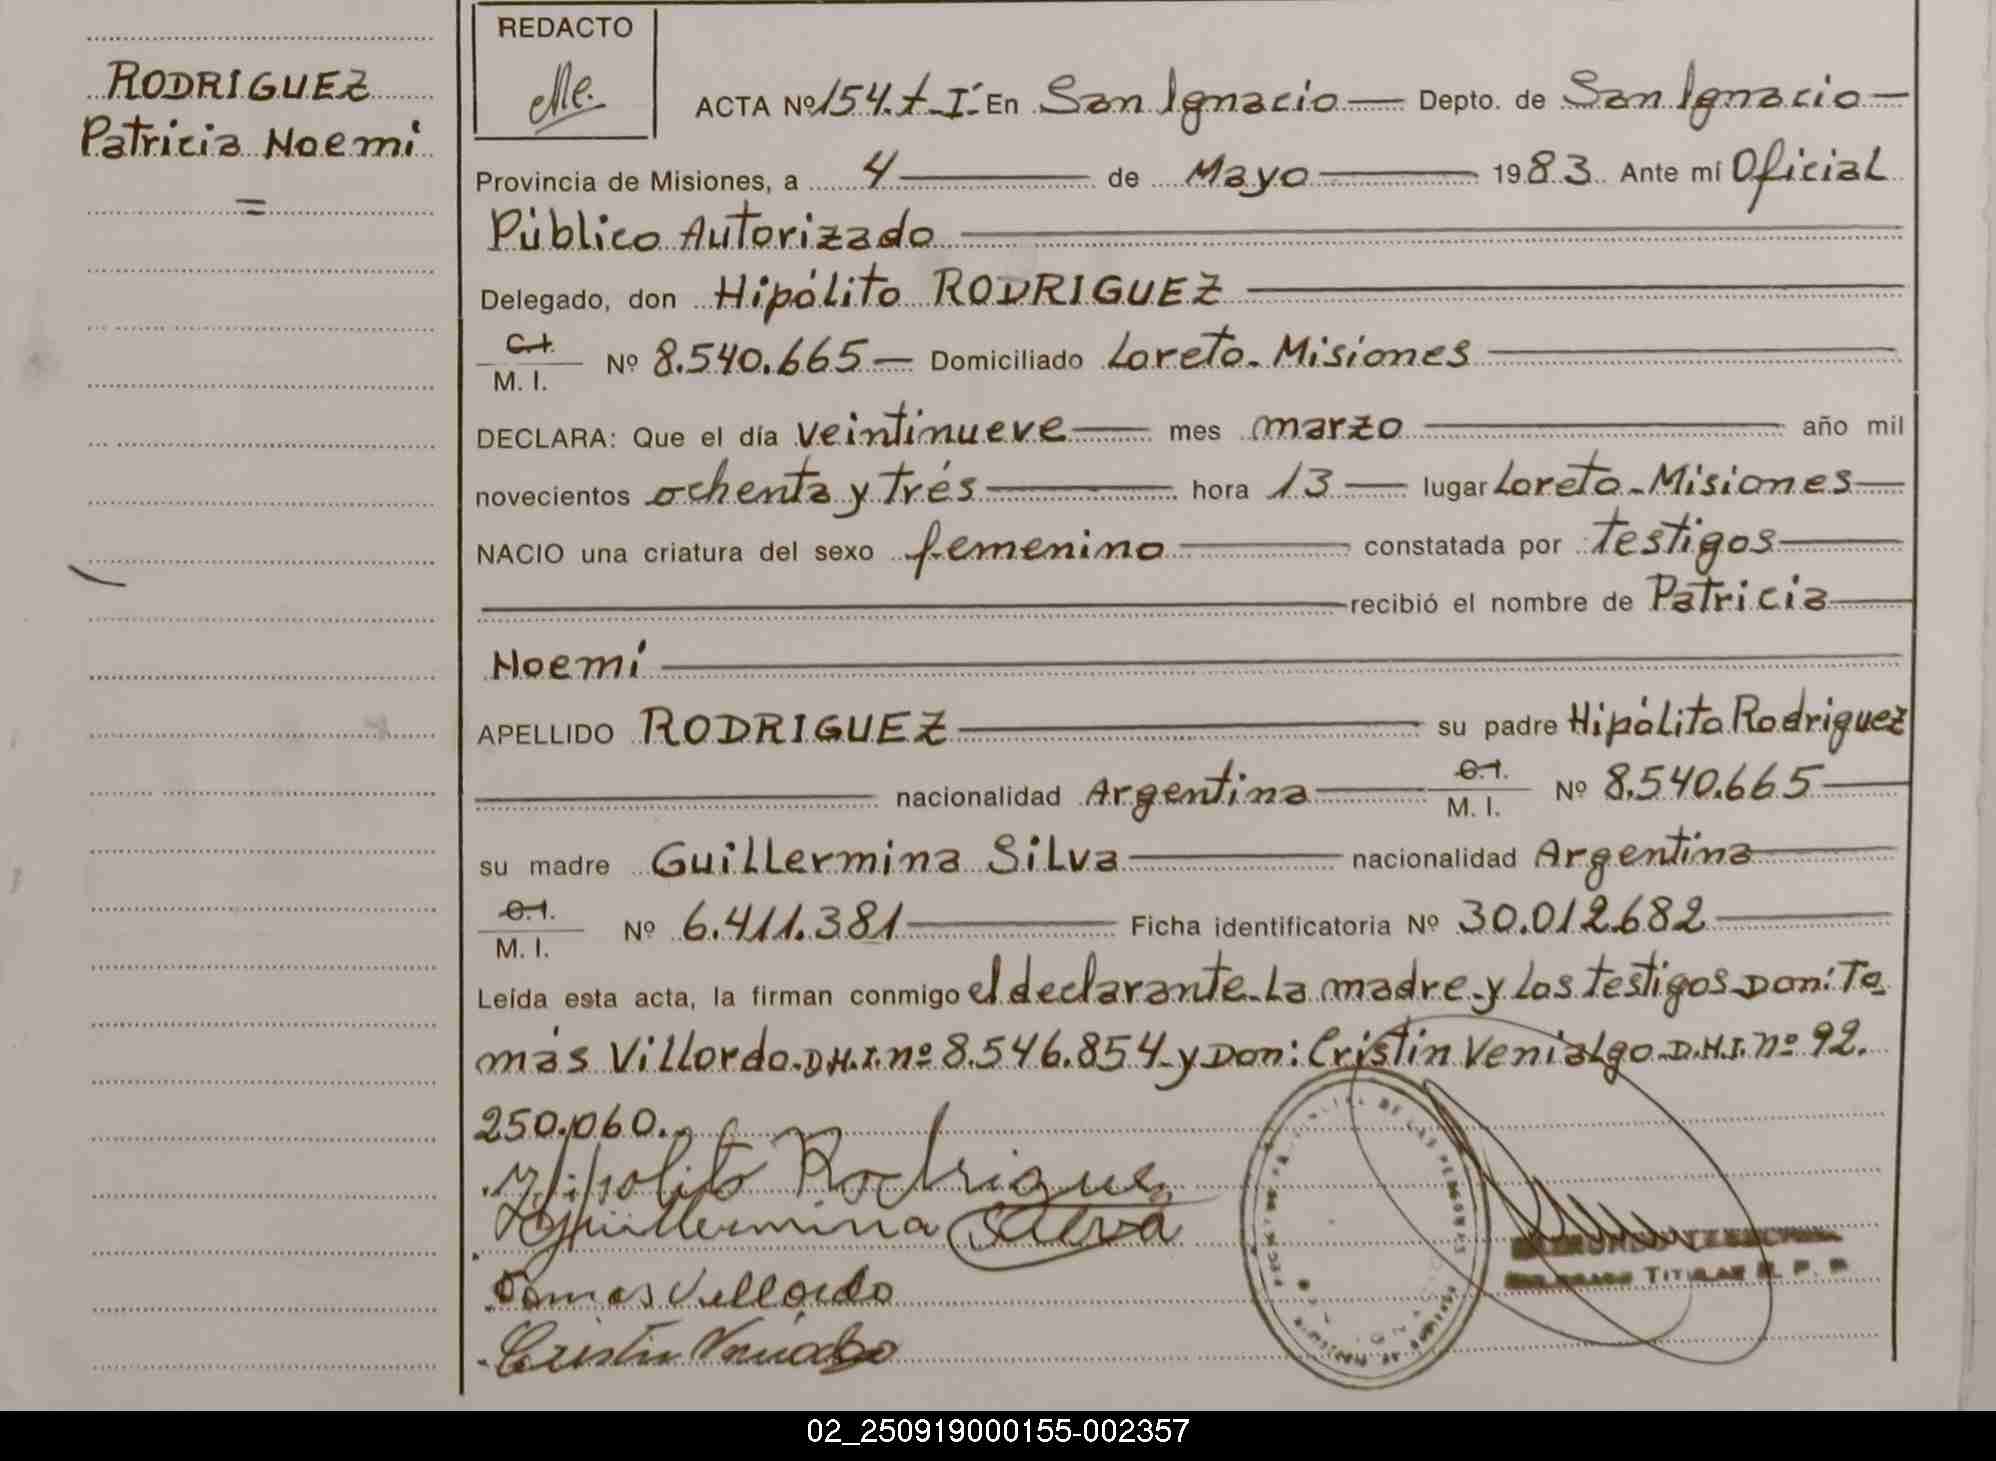 RODRIGUEZ
Patricia Noemí
=
REDACTO
ACTA Nº 154. t. I. En San Ignacio Depto. de San Ignacio
Provincia de Misiones, a 4 de Mayo 1983. Ante mí Oficial
Público Autorizado
Delegado, don Hipólito RODRIGUEZ
C.I.
M. I. Nº 8.540.665 Domiciliado Loreto. Misiones
DECLARA: Que el día veintinueve mes marzo año mil
novecientos ochenta y trés hora 13 lugar Loreto. Misiones
NACIO una criatura del sexo femenino constatada por testigos
recibió el nombre de Patricia
Noemí
APELLIDO RODRIGUEZ su padre Hipólito Rodriguez
nacionalidad Argentina C.I. M. I. Nº 8.540.665
su madre Guillermina Silva nacionalidad Argentina
C.I.
M. I. Nº 6.411.381 Ficha identificatoria Nº 30.012.682
Leída esta acta, la firman conmigo el declarante. La madre y los testigos Don: To
más Villordo. D.N.I. nº 8.546.854 y Don: Cristin Venialgo D.N.I. nº 92.
250.060.
Hipolito Rodriguez
Guillermina Silva
Tomas Villordo
Cristin Venialgo
TITULAR R. P. P.
02_250919000155-002357